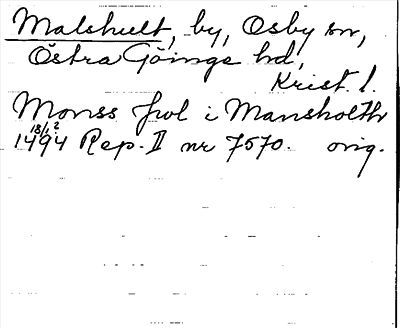 Malshult, by, Osby sn,
Östra Göinge hd,
Krist. l.
Monss Jwl i Mansholth
18/1 ?
1494 Rep. II nr 7570. orig.